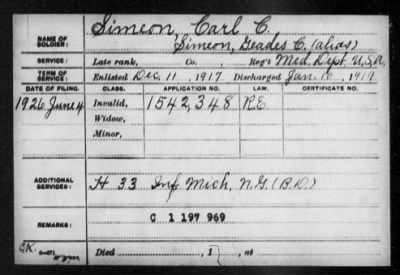 Simeon, Carl C.
NAME OF SOLDIER: Simeon, Geades C. (alias)
SERVICE: Late rank, Co. , Reg't Med. Dept. U.S.A.
TERM OF SERVICE: Enlisted Dec. 11, 1917. Discharged Jan. , 1919
DATE OF FILING. CLASS. APPLICATION NO. LAW. CERTIFICATE NO.
1926 June 4 Invalid, 1542,348 R.E.
Widow,
Minor,
ADDITIONAL SERVICES: H 33 Inf. Mich. N.G. (B.D.)
REMARKS: C 1 197 969
Died , 1 , at